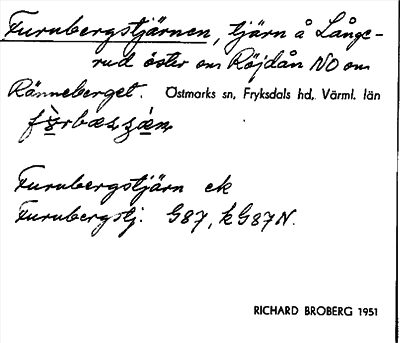 Furubergstjärnen, tjärn å Långe-
rud öster om Röjdån NO om
Ränneberget. Östmarks sn, Fryksdals hd, Värml. län
Furubergstjärn ek
Furubergstj. G87, kG87N.
RICHARD BROBERG 1951